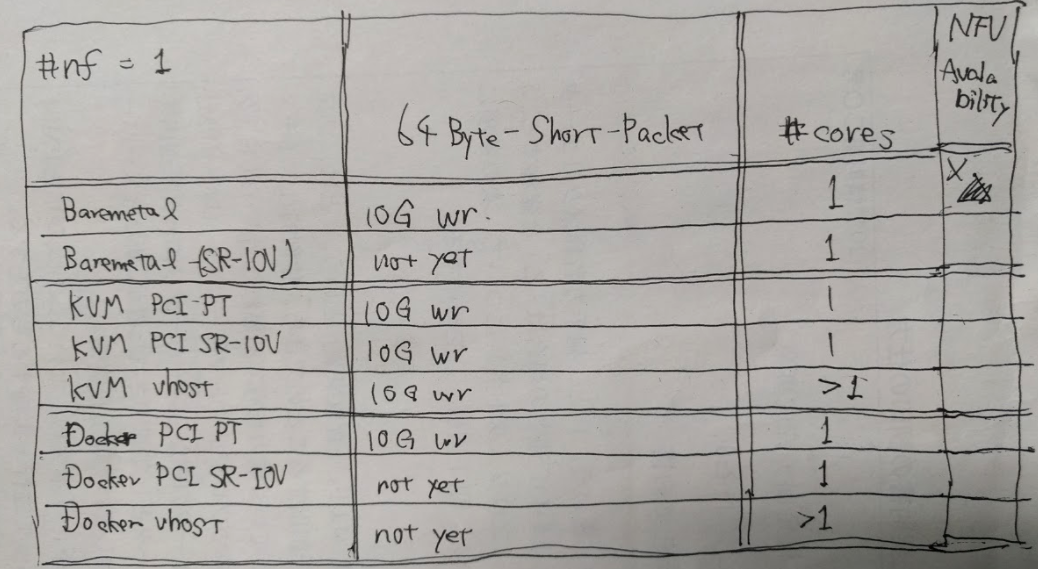 #nf = 1
64 Byte-Short-Packet
#cores
NFV
Avala
bility
Baremetal 10G wr. 1 X
Baremetal (SR-IOV) not yet 1
KVM PCI-PT 10G wr 1
KVM PCI SR-IOV 10G wr 1
KVM vhost 10G wr >1
Docker PCI PT 10G wr 1
Docker PCI SR-IOV not yet 1
Docker vhost not yet >1